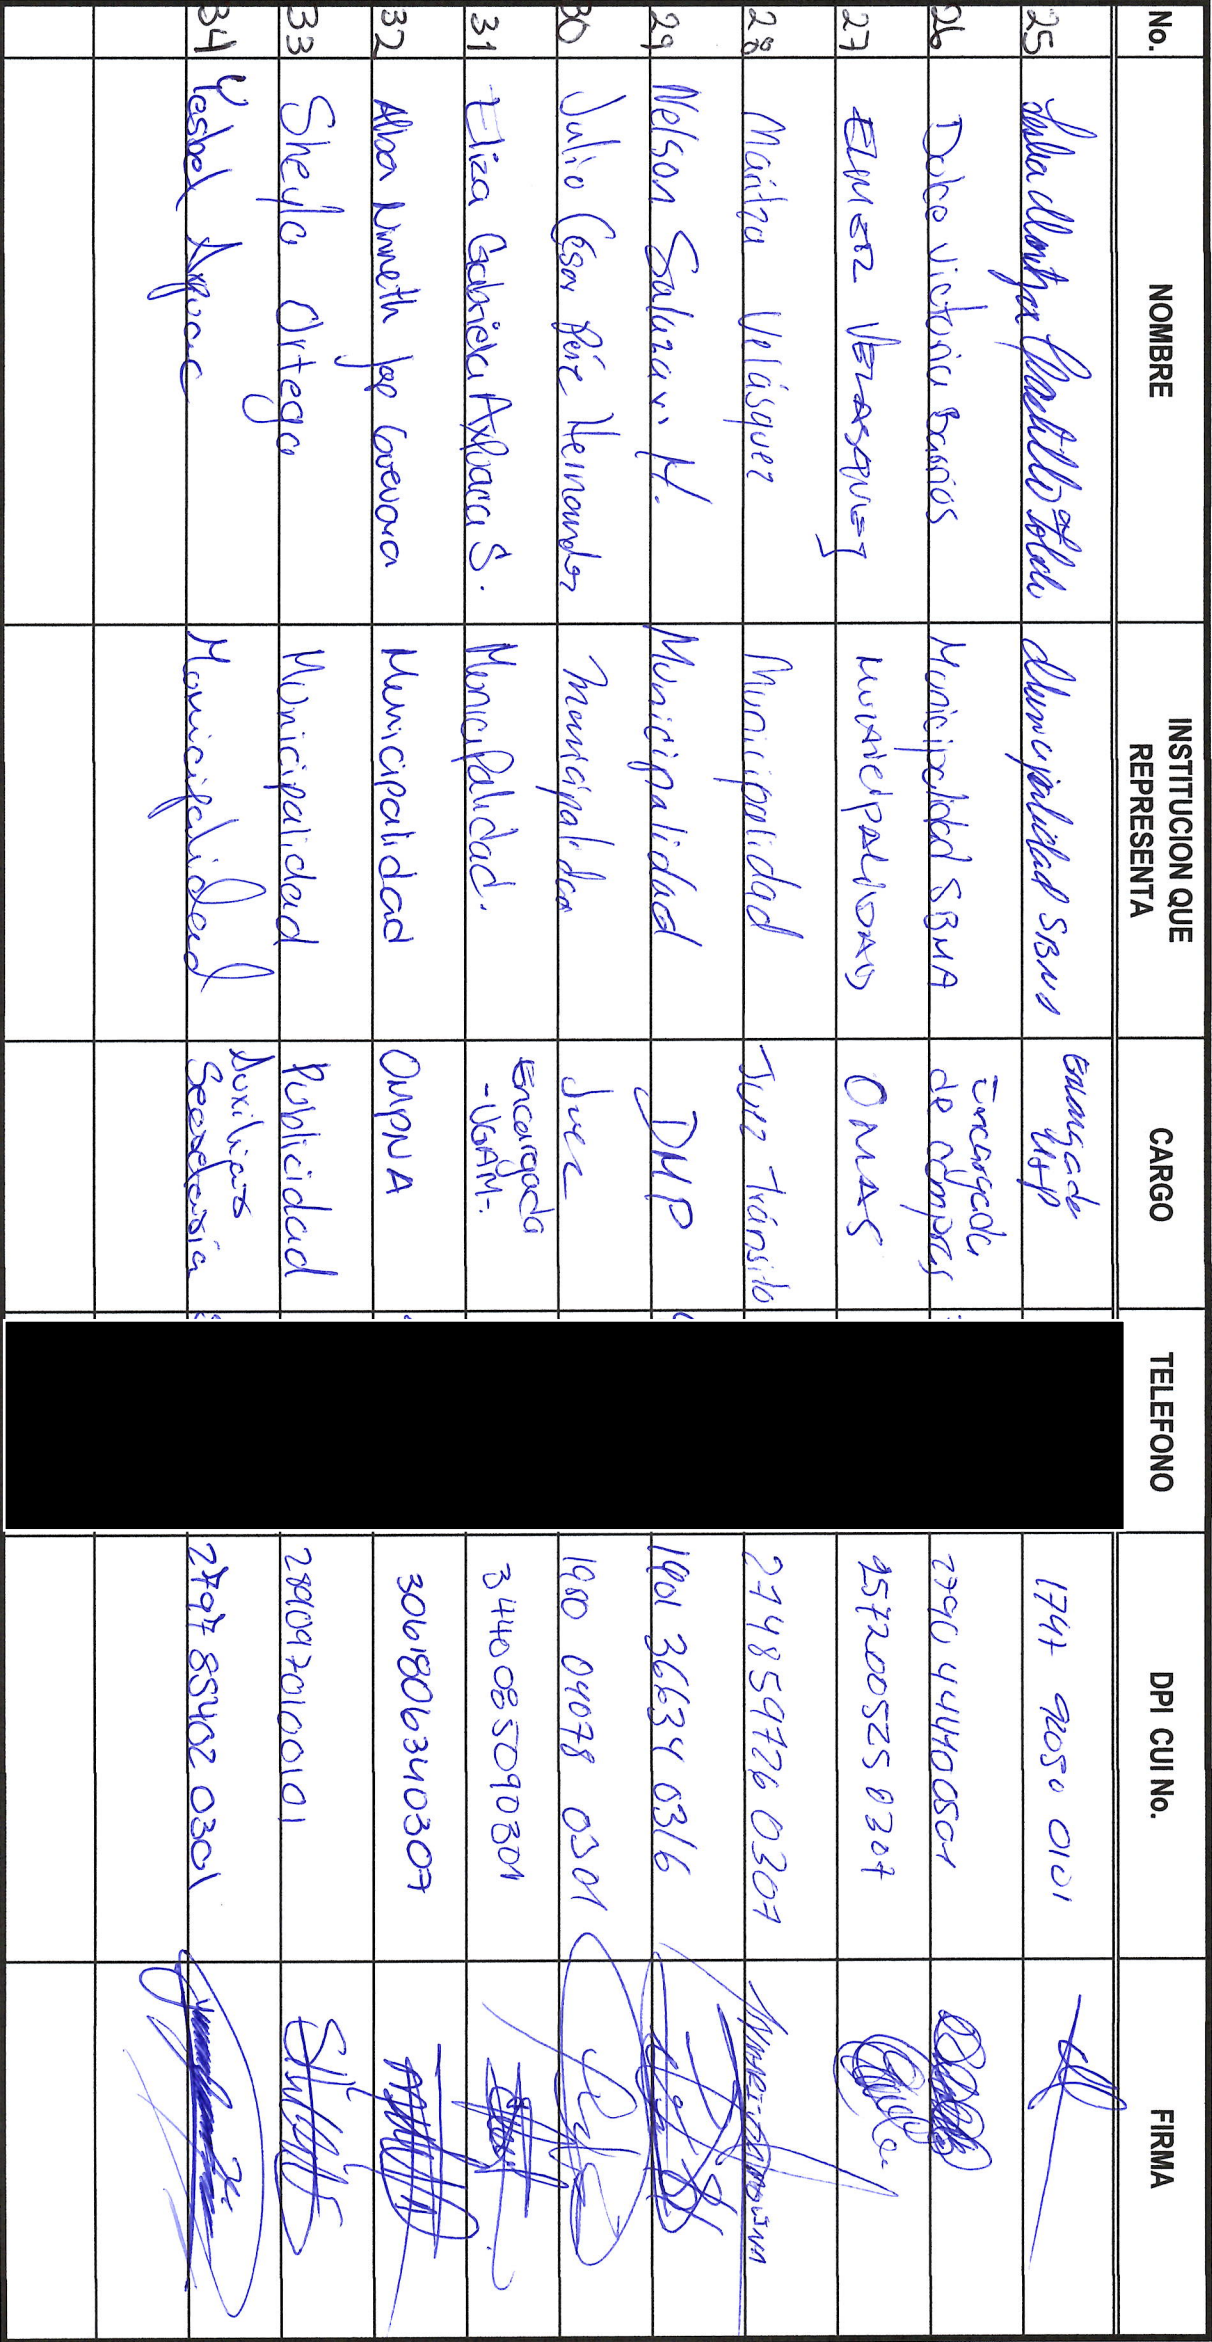 No. NOMBRE INSTITUCION QUE REPRESENTA CARGO TELEFONO DPI CUI No. FIRMA
25 Municipalidad SBMA Encargada UAP 1747 92050 0101
26 Dulce Victoria Barrios Municipalidad SBMA Encargada de compras 2790 44440 0501
27 ELMER VELASQUEZ MUNICIPALIDAD OMAS 2572005250307
28 Maritza Velásquez Municipalidad Juez Tránsito 2748 59726 0307
29 Nelson Salazar H. Municipalidad DMP 1901 36634 0316
30 Julio Cesar Hernandez Municipalidad Juez 1980 04078 0301
31 Eliza Gabriela Axpuac S. Municipalidad. Encargada -UGAM-. 3440085090301
32 Alba Ninneth Jop Guevara Municipalidad OMPNA 3061806340307
33 Sheyla Ortega Municipalidad Publicidad 2890970100101
34 Yasbel Axpuac Municipalidad Auxiliar Secretaria 2797 85402 0301